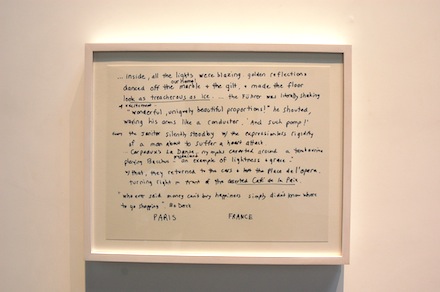 ... inside, all the lights were blazing. golden reflections
danced off the marble + the gilt, + made the floor
look as treacherous as ice. - the Führer was literally shaking
w/ excitement -
"wonderful, uniquely beautiful proportions!" he shouted,
waving his arms like a conductor. 'And such pomp!'
the janitor silently stood by w/ the expressionless rigidity
of a man about to suffer a heart attack
- Carpeaux's La Danse, nymphs cavorted around a tambourine
playing Bacchus - an example of lightness + grace -
w/ that, they returned to the cars + left the Place de l'opera,
turning right in front of the deserted Café de la Paix.
"whoever said money can't buy happiness simply didn't know where
to go shopping" Bo Derek
PARIS FRANCE